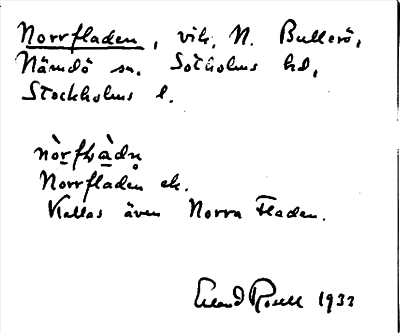 Norrfladen, vik, N. Bullerö,
Nämdö sn. Sotholms hd,
Stockholms l.
Norrfladen ek.
Kallas även Norra Fladen.
Erland Rosell 1933